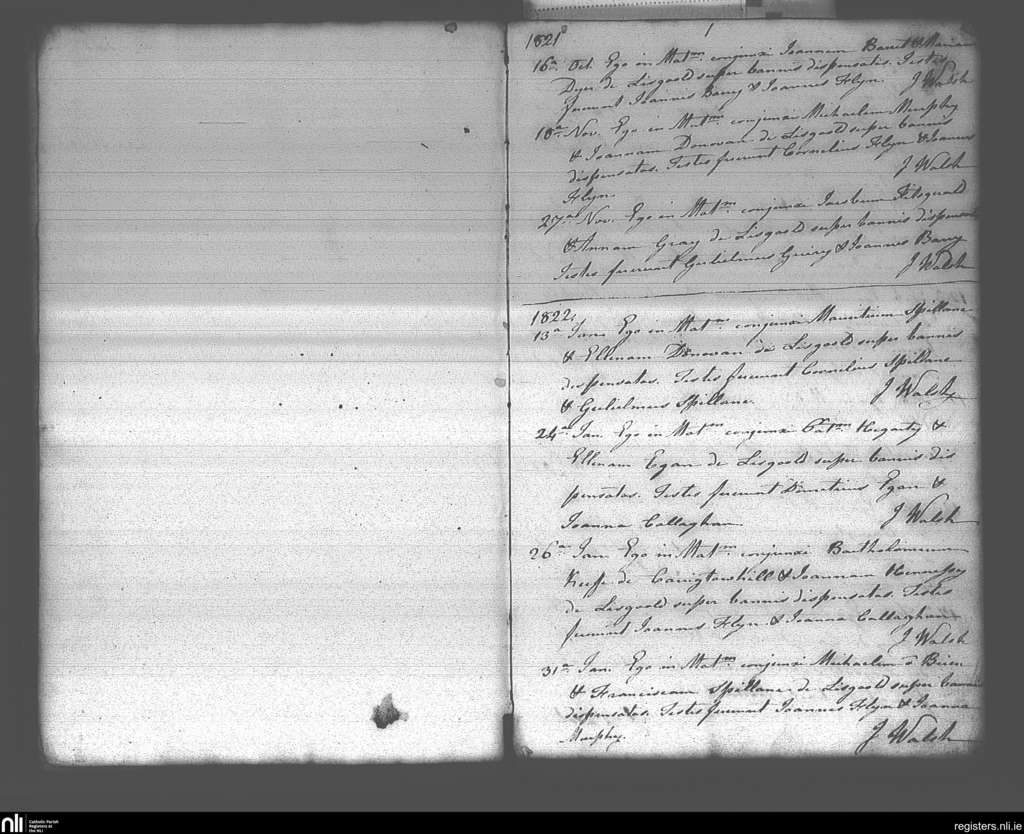 1
1821
16a. Oct. Ego in Matm. conjunxi Joannem Barret & Mariam
Dyer de Lisgoold super bannis dispensatas. Testes
fuerunt Joannes Barry & Joannes Flyn. J Walsh
18a. Nov. Ego in Matm. conjunxi Michaelem Murphy
& Joannam Donovan de Lisgoold super bannis
dispensatas. Testes fuerunt Cornelius Flyn & Joannes
Flyn. J Walsh
27a. Nov. Ego in Matm. conjunxi Jacobum Fitzgerald
& Annam Gray de Lisgoold super bannis dispensatas
Testes fuerunt Gulielmus & Joannes Barry
J Walsh
1822.
13a Jan. Ego in Matm. conjunxi Mauritium Spillane
& Ellenam Donovan de Lisgoold super bannis
dispensatas. Testes fuerunt Cornelius Spillane
& Gulielmus Spillane. J Walsh
24a Jan. Ego in Matm conjunxi Patm. Hegarty &
Ellenam Egan de Lisgoold super bannis dis
pensatas. Testes fuerunt Demetrius Egan &
Joanna Callaghan. J Walsh
26a Jan Ego in Matm. conjunxi Bartholomeum
Keeffe de Carrigtowhill & Joannam Hennessy
de Lisgoold super bannis dispensatas. Testes
fuerunt Joannes Flyn & Joanna Callaghan
J Walsh
31a. Jan. Ego in Matm. conjunxi Michaelem o Brien
& Franciscam Spillane de Lisgoold super bannis
dispensatas. Testes fuerunt Joannes Flyn & Joanna
Murphy. J Walsh
nli Catholic Parish
Registers at
the NLI
registers.nli.ie